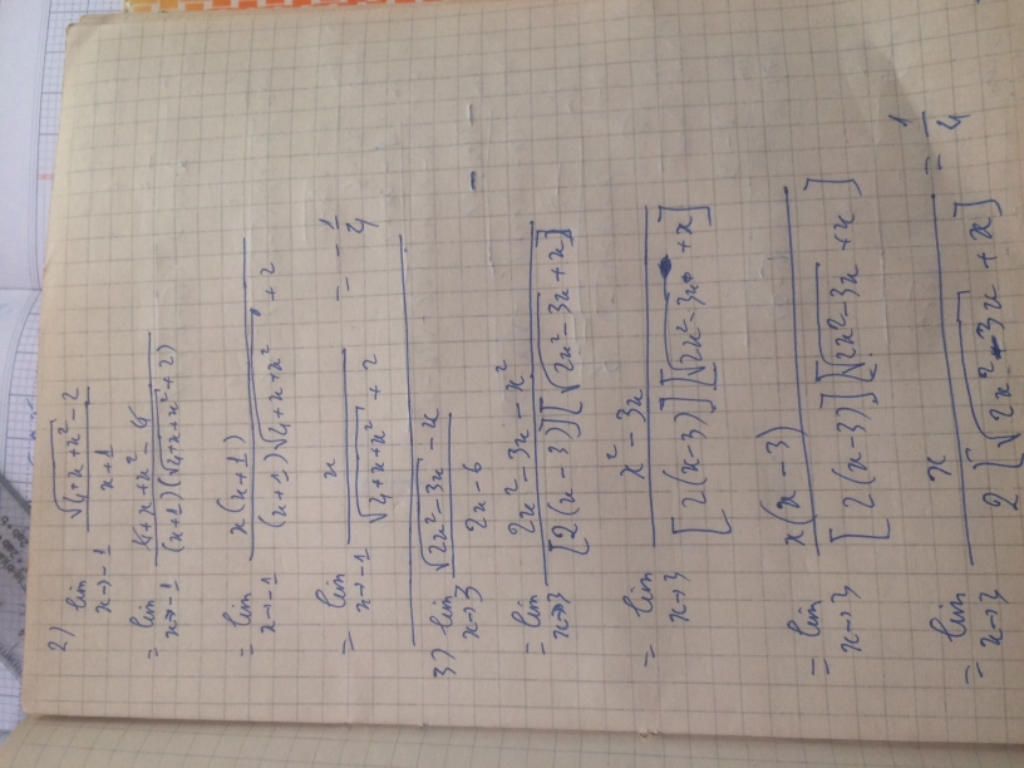 2) lim x→-1 (√(4+x+x²) - 2)/(x+1)
= lim x→-1 (4+x+x²-4)/((x+1)(√(4+x+x²)+2))
= lim x→-1 x(x+1)/((x+1)√(4+x+x²)+2)
= lim x→-1 x/(√(4+x+x²)+2) = -1/4
3) lim x→3 (√(2x²-3x) - x)/(2x-6)
= lim x→3 (2x²-3x-x²)/([2(x-3)][√(2x²-3x)+x])
= lim x→3 (x²-3x)/([2(x-3)][√(2x²-3x)+x])
= lim x→3 x(x-3)/([2(x-3)][√(2x²-3x)+x])
= lim x→3 x/(2[√(2x²-3x)+x]) = 1/4